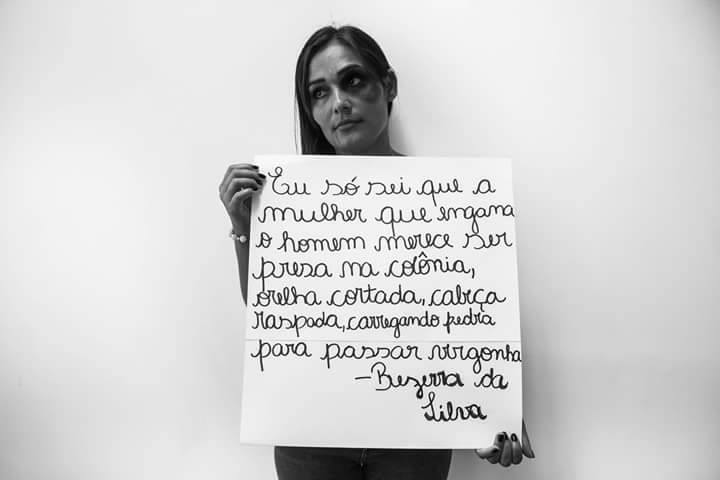 Eu só sei que a
mulher que engana
o homem merece ser
presa na colônia,
orelha cortada, cabeça
raspada, carregando pedra
para passar vergonha
-Bezerra da
Silva